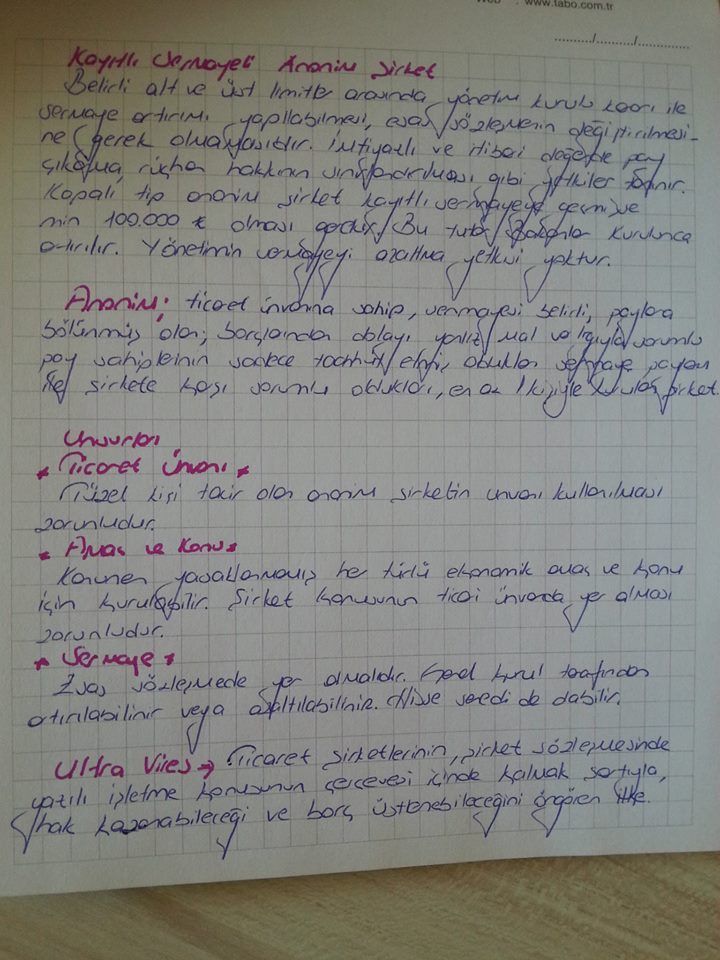 www.tabo.com.tr
........../........../..........
Kayıtlı Sermayeli Anonim Şirket
Belirli alt ve üst limitler arasında yönetim kurulu kararı ile
sermaye artırımı yapılabilmesi, esas sözleşmenin değiştirilmesi-
ne gerek olmamasıdır. İmtiyazlı ve itibari değerde pay
çıkarma, rüçhan hakkının sınırlandırılması gibi yetkiler tanınır.
Kapalı tip anonim şirket kayıtlı sermayeye geçmişse
min 100.000 ₺ olması gerekir. Bu tutar Bakanlar Kurulunca
artırılır. Yönetimin sermayeyi azaltma yetkisi yoktur.
Anonim; ticaret ünvanına sahip, sermayesi belirli, paylara
bölünmüş olan; borçlarından dolayı yalnız mal varlığıyla sorumlu
pay sahiplerinin sadece taahhüt etmiş oldukları sermaye payları
ile şirkete karşı sorumlu oldukları, en az 1 kişiyle kurulan şirket.
Unsurları
* Ticaret Ünvanı *
Tüzel kişi tacir olan anonim şirketin unvanı kullanılması
zorunludur.
* Amaç ve Konu *
Kanunen yasaklanmamış her türlü ekonomik amaç ve konu
için kurulabilir. Şirket konusunun ticari ünvanda yer alması
zorunludur.
* Sermaye *
Esas sözleşmede yer almalıdır. Genel kurul tarafından
artırılabilinir veya azaltılabilinir. Hisse senedi de
Ultra Vires → Ticaret şirketlerinin, şirket sözleşmesinde
yazılı işletme konusunun çerçevesi içinde kalmak şartıyla,
hak kazanabileceği ve borç üstlenebileceğini öngören ilke.